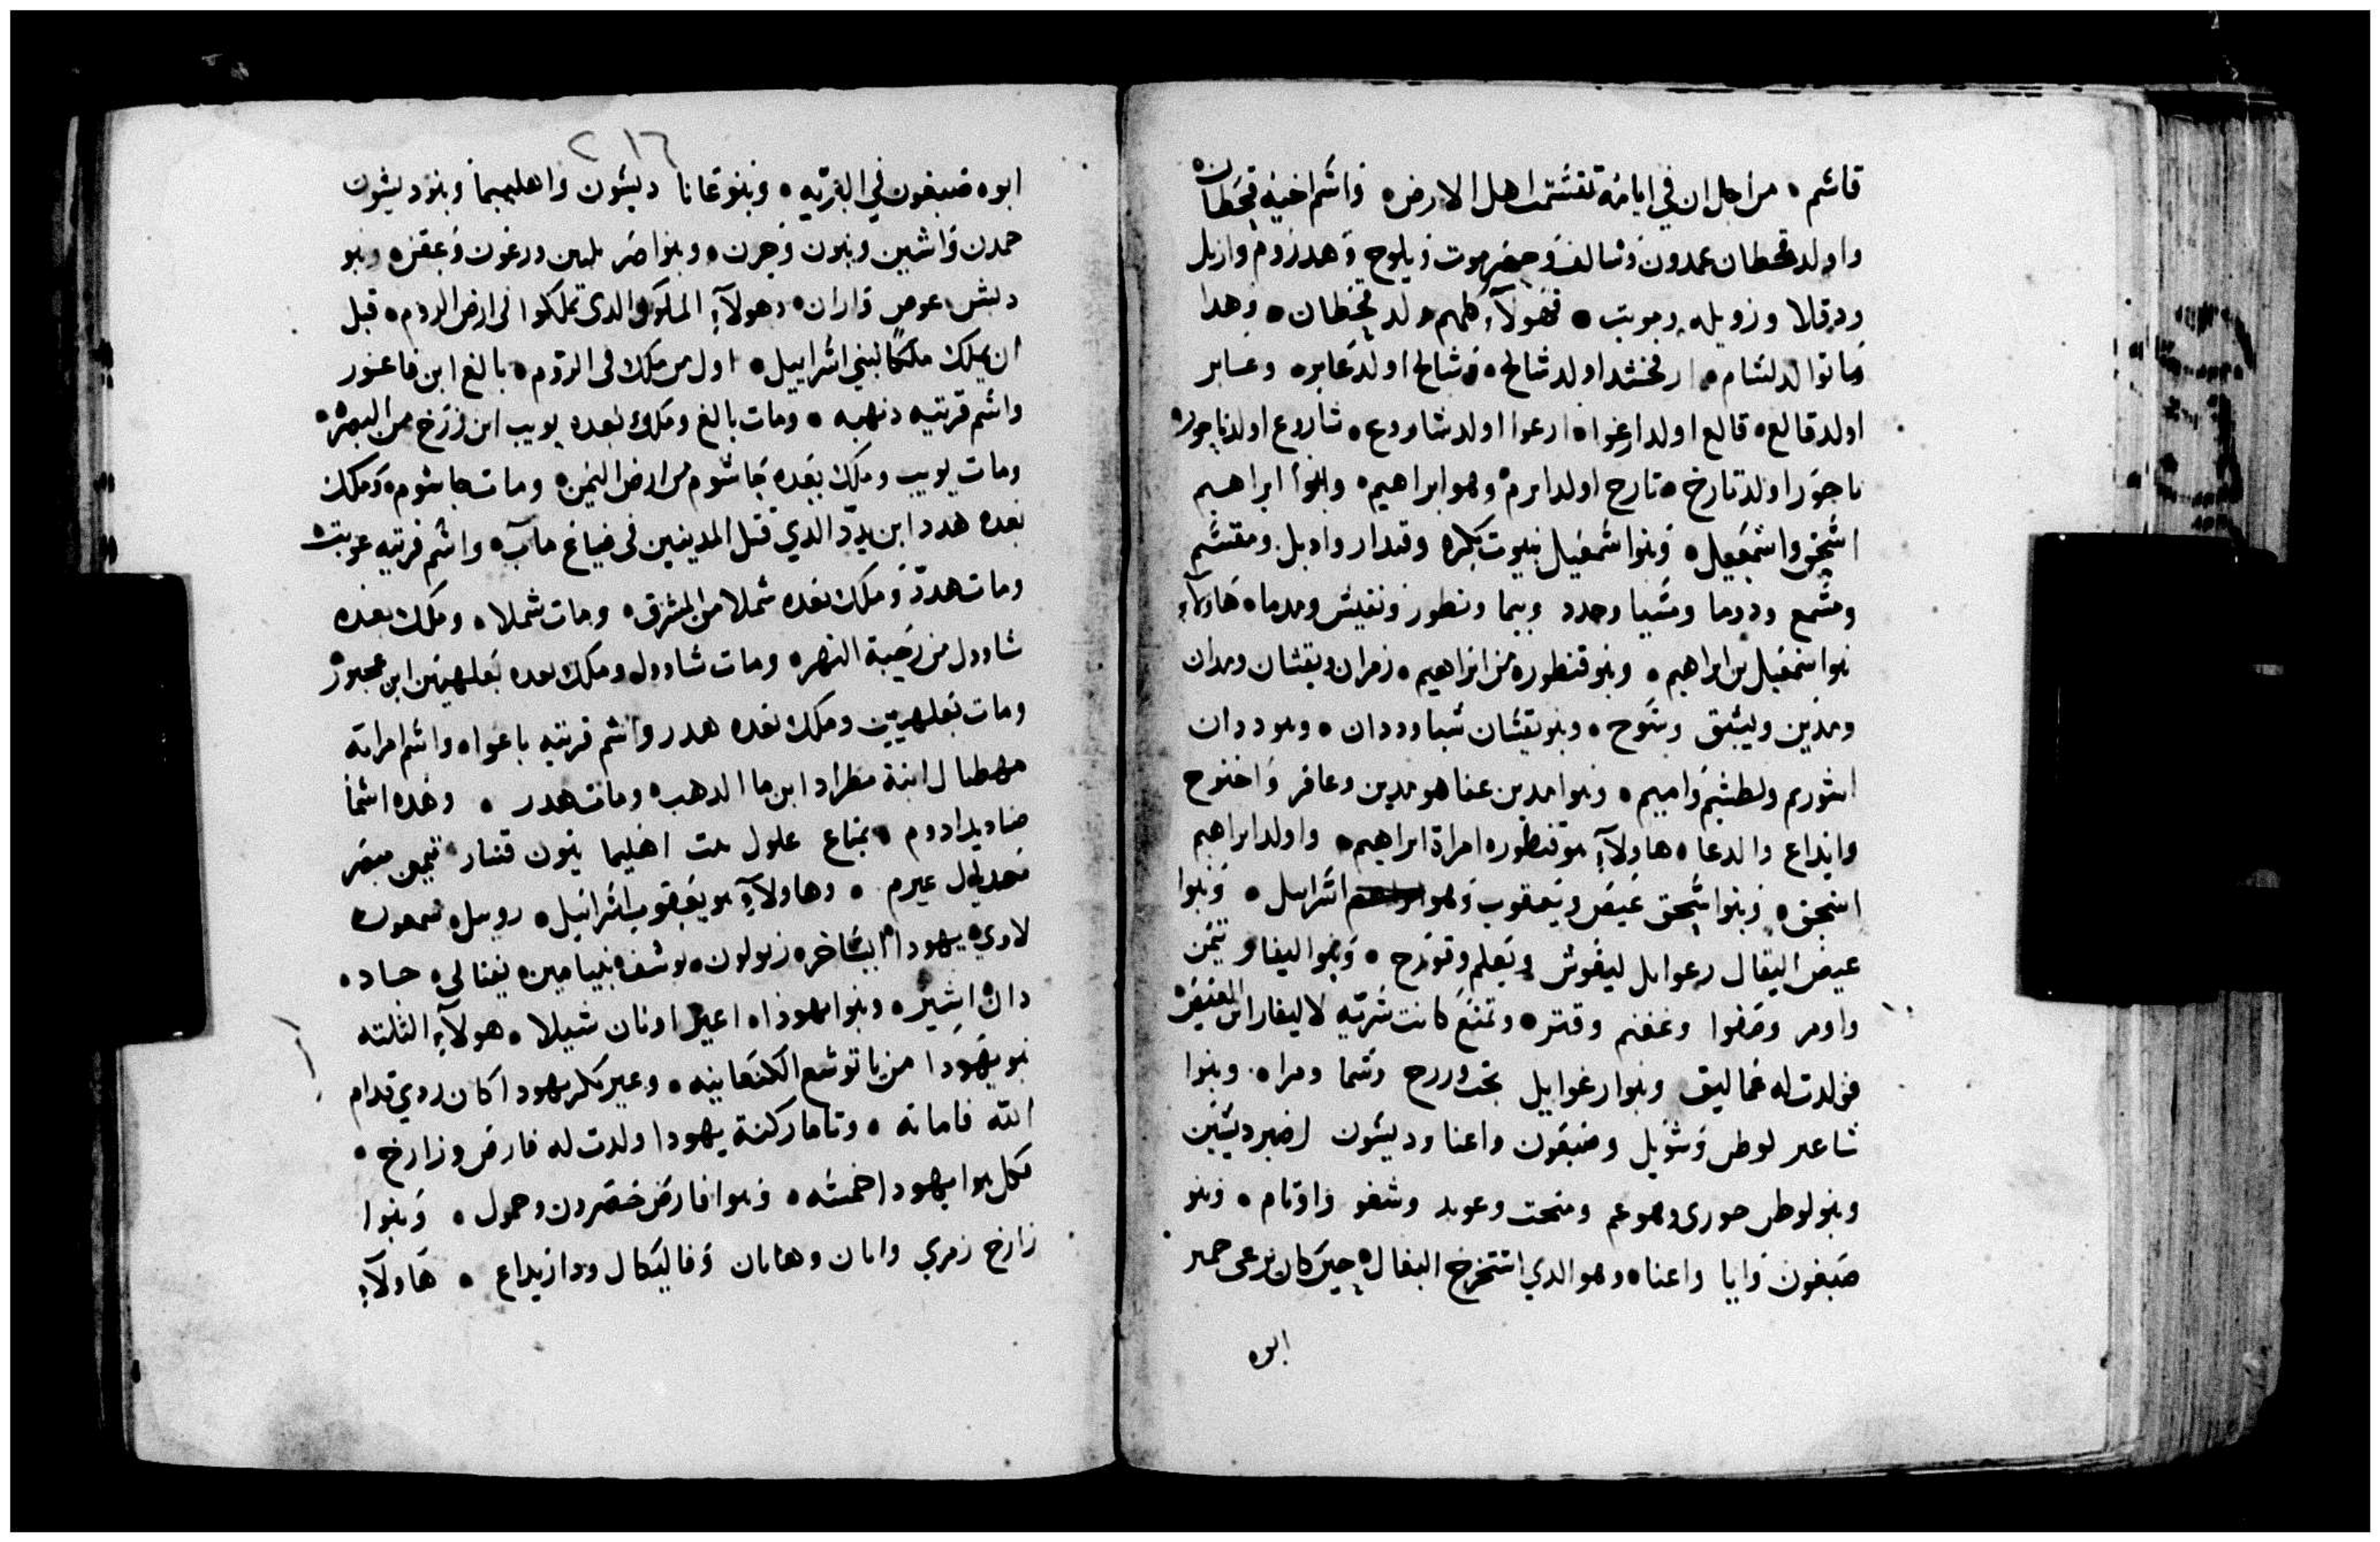 قاسم ٥ من اجل ان في ايامه تقسمت اهل الارض ٥ واسم اخيه قحطان ٥
واولد قحطان عمدون وشالف وحضرموت ويلوح وهدروم وازيل
ودقلا وزويله وبوبت ٥ فهولآء كلهم ولد قحطان ٥ وهدا
ما توالد لسام ٥ ارفخشد اولد شالح ٥ وشالح اولد عابر ٥ وعابر
اولد فالع ٥ فالع اولد ارعوا ٥ ارعوا اولد شاروع ٥ شاروع اولد ناحور ٥
ناحور اولد تارخ ٥ تارح اولد ابرم وهو ابراهيم ٥ وبنوا ابراهيم
اسحق واسمعيل ٥ وبنوا اسمعيل نبيوت بكره وقيدار وادبل ومقسم
ومسمع ودوما ومسا وحدد وتيما ونطور ونفيس وقدما ٥ هاولآء
بنوا اسمعيل بن ابراهيم ٥ وبنو قنطوره من ابراهيم ٥ زمران ويقشان ومدان
ومدين وليشبق وشوح ٥ وبنو يقشان شبا وددان ٥ وبنو ددان
اشوريم ولطشيم واميم ٥ وبنوا مدين عفا هو مدين وعافر واخنوح
وابداع والدعا ٥ هاولآء بنو قنطوره امراة ابراهيم ٥ واولد ابراهيم
اسحق ٥ وبنوا اسحق عيص ويعقوب وهو اسراييل ٥ وبنوا
عيص اليفال رعوايل ليغوش ويعلم وقورح ٥ وبنوا اليفاز تيمن
واومر وصفوا وغفنم وقنز ٥ وتمنع كانت سرية لاليفاز ابن العيص ٥
فولدت له عماليق وبنوا رغوايل نحت وزرح وشما ومزا ٥ وبنوا
شاعير لوطن وشوبل وصبعون واعنا وديشون اصر ديشن
وبنو لوطن حورى وهو عم ومنحت وعوبد وشفو واونام ٥ وبنو
صبغون وايا واعنا ٥ وهو الدي استخرج البغال حين كان يرعى حمير
ابوه
٢١٦
ابوه صبغون في البريه ٥ وبنو عانا ديشون واهليبما وبنو ديشون
حمدن واشبن وبنون وجرن ٥ وبنوا صر بلين ورعون وعقن ٥ وبنو
ديش عوص واران ٥ وهولآء الملوك الدى تملكوا فى ارض الروم ٥ قبل
ان يملك ملكا لبني اسراييل ٥ اول من ملك فى الروم ٥ بالغ ابن فاعور
واسم قريته دنهبه ٥ ومات بالغ وملك بعده يوبيب ابن زرخ من البصره ٥
ومات يوبيب وملك بعده جاشوم من ارض اليمن ٥ ومات جاشوم ٥ وملك
بعده هدد ابن بدد الدي قتل المدينين فى ضياع مآب ٥ واسم قريته عويت ٥
ومات هدد وملك بعده شملا من المشرق ٥ ومات شملا ٥ وملك بعده
شاوول من رحبة النهر ٥ ومات شاوول وملك بعده بعلهينن ابن عجبور ٥
ومات بعلهينن وملك بعده هدر واسم قريته باعوا ٥ واسم امراته
مهطبال ابنة مطراد ابن ما الدهب ٥ ومات هدر ٥ وهده اسما
صناديد ادوم ٥ تمناع علول بنت اهليما ينون قنار تيمن مبصر
مجديل عيرم ٥ وهاولآء بنو يعقوب اسراييل ٥ روبيل سمعون
لاوي يهودا ايساخر ٥ زبولون ٥ يوسف ٥ بنيامين ٥ نفتالي ٥ جاد ٥
دان ٥ اشير ٥ وبنوا يهودا ٥ اعير اونان شيلا ٥ هولآء الثلته
بنو يهودا من باتوشع الكنعانيه ٥ وعير بكر يهودا كان ردي قدام
الله فاماته ٥ وتامار كنة يهودا ولدت له فارص وزارخ ٥
فكل بنوا يهودا خمسه ٥ وبنوا فارص خصرون وحمول ٥ وبنوا
زارخ زمري واىان وهامان وفاليكال ودازيداع ٥ هاولآء